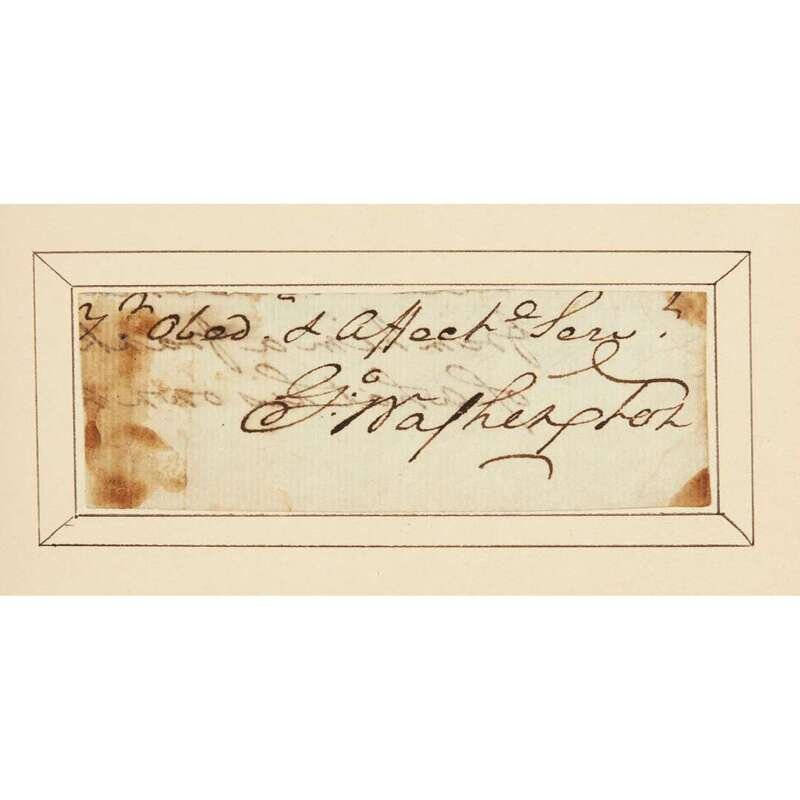 Yr. Obedt. & Affecte. Servt.
Go: Washington